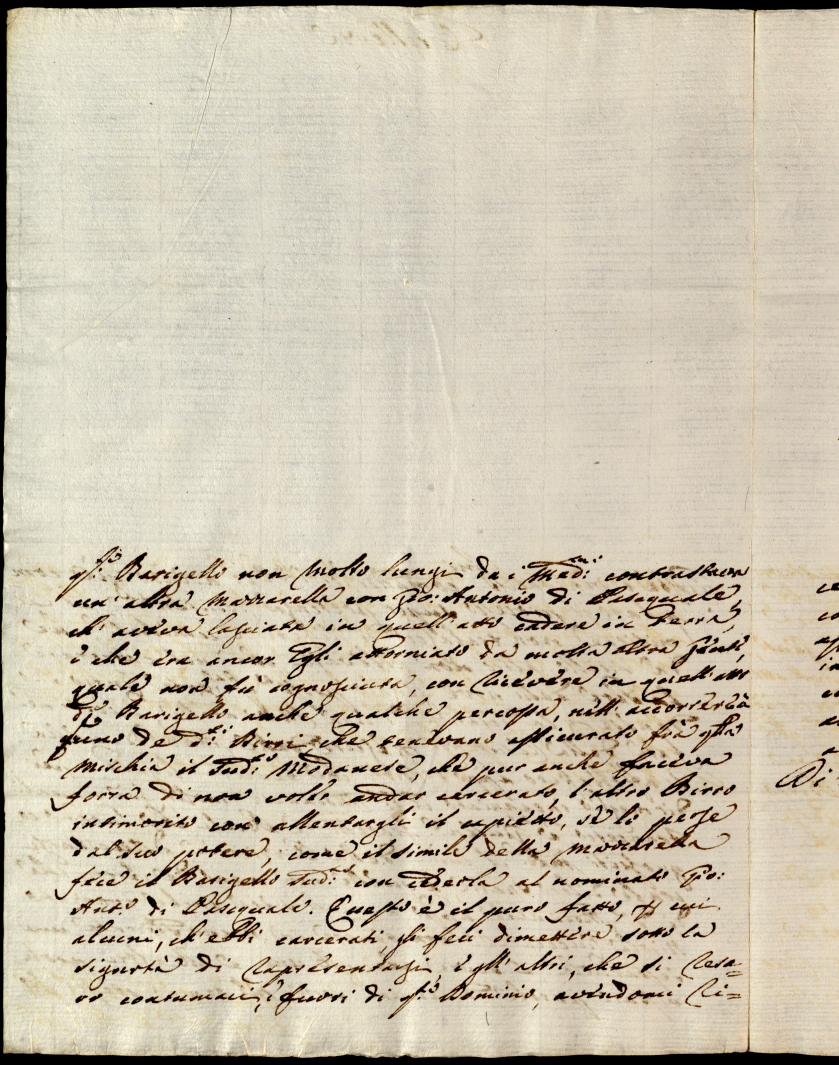 q.to Barigello non molto lungi da i med.mi contrastava
un' altra mazzarella con Gio: Antonio di Pasquale,
ch' aveva lasciata in quell' atto cadere in terra,
e che era ancor Egli attorniato da molta altra gente,
quale non fù cognosciuta, con ricevere in quell' atto
d.o Barigello anche qualche percossa, nell' accorrere à
uno de d.ti Birri, che tenevano assicurato frà q.sta
mischia il sud.o Modanese, che pur anche faceva
forza di non voler andar carcerato, l' altro Birro
intimorito con allentargli il capietto, se lo perse
dal suo potere, come il simile della mazzarella
fece il Barigello sud.o con cederla al nominato Gio:
Ant.o di Pasquale. Questo è il puro fatto, p cui
alcuni, ch' ebbi carcerati, gli feci dimettere sotto la
sigurtà di rapresentarsi, e gl' altri, che si resa=
ro contumaci, e fuori di q.to Dominio, avendomi ri=
Di